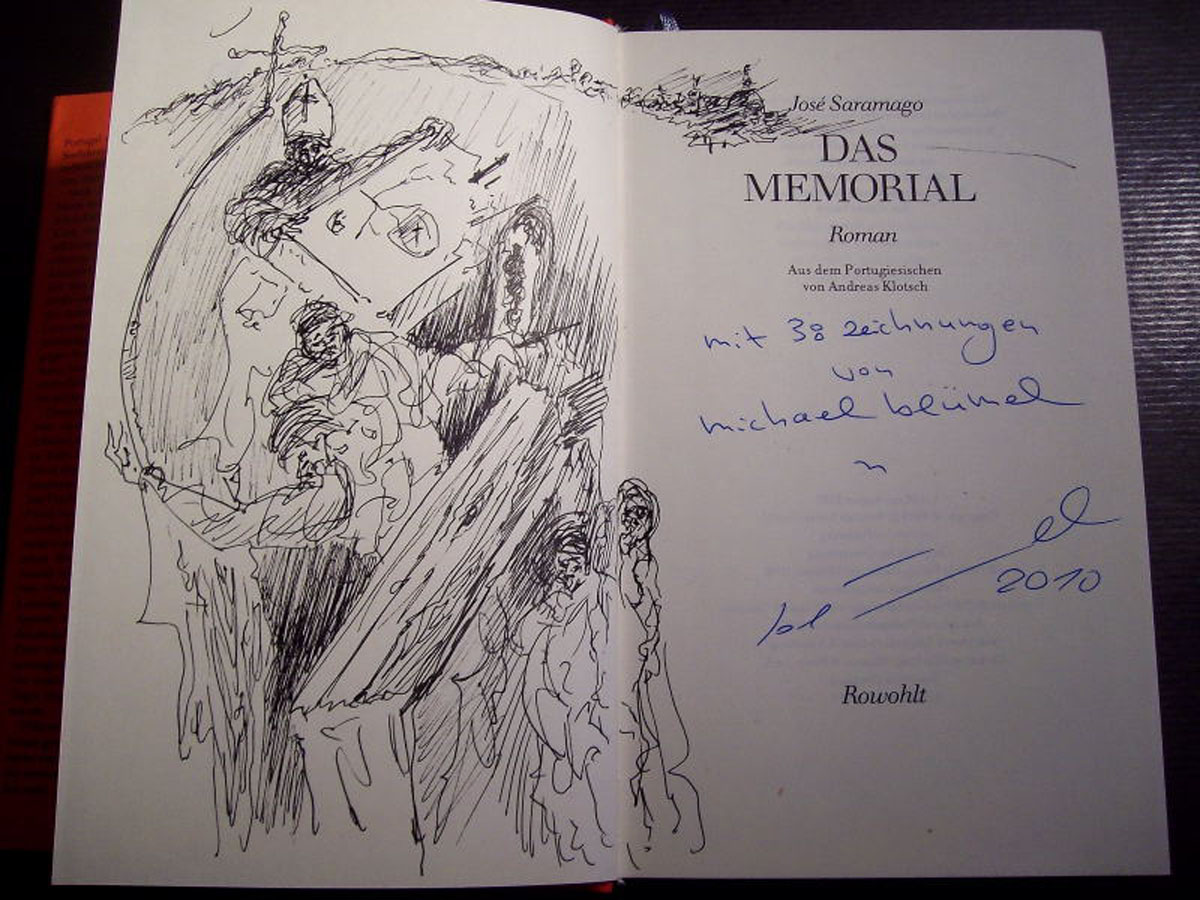 José Saramago
DAS
MEMORIAL
Roman
Aus dem Portugiesischen
von Andreas Klotsch
mit 38 zeichnungen
von
michael blümel
2010
Rowohlt